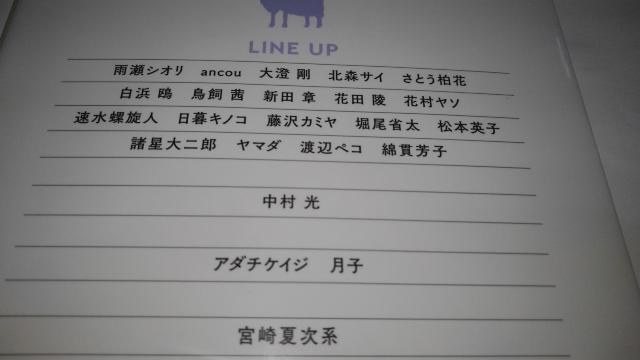 LINE UP
雨瀬シオリ ancou 大澄 剛 北森サイ さとう柏花
白浜 鴎 鳥飼 茜 新田 章 花田 陵 花村ヤソ
速水螺旋人 日暮キノコ 藤沢カミヤ 堀尾省太 松本英子
諸星大二郎 ヤマダ 渡辺ペコ 綿貫芳子
中村 光
アダチケイジ 月子
宮崎夏次系